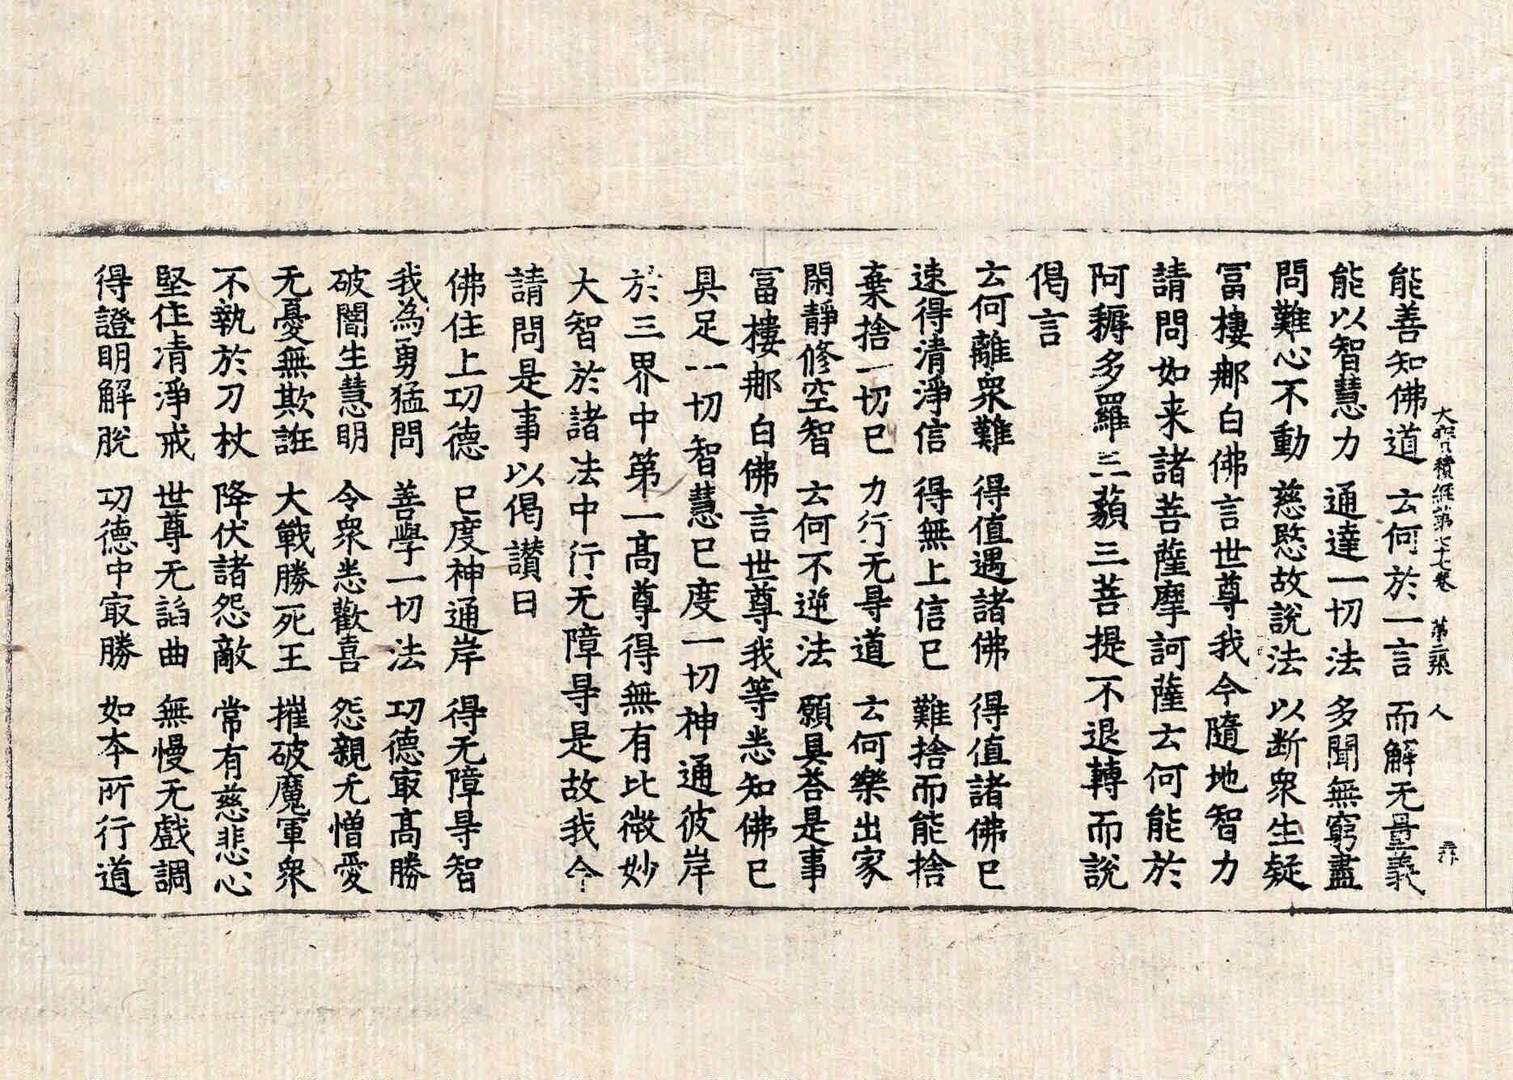 大寶積經第七十七卷 第二張 人
能善知佛道 云何於一言 而解无量義
能以智慧力 通達一切法 多聞無窮盡
問難心不動 慈愍故說法 以断衆生疑
冨樓那白佛言世尊我今隨地智力
請問如来諸菩薩摩訶薩云何能於
阿耨多羅三藐三菩提不退轉而說
偈言
云何離衆難 得值遇諸佛 得值諸佛已
速得清淨信 得無上信已 難捨而能捨
棄捨一切已 力行无㝵道 云何樂出家
閑靜修空智 云何不逆法 願具荅是事
冨樓那白佛言世尊我等悉知佛已
具足一切智慧已度一切神通彼岸
於三界中第一高尊得無有比微妙
大智於諸法中行无障㝵是故我今
請問是事以偈讃曰
佛住上功德 已度神通岸 得无障㝵智
我為勇猛問 善學一切法 功德㝡高勝
破闇生慧明 令衆悉歡喜 怨親无憎愛
无憂無欺誑 大戰勝死王 摧破魔軍衆
不執於刀杖 降伏諸怨敵 常有慈悲心
堅住清淨戒 世尊无諂曲 無慢无戲調
得證明解脫 功德中㝡勝 如本所行道